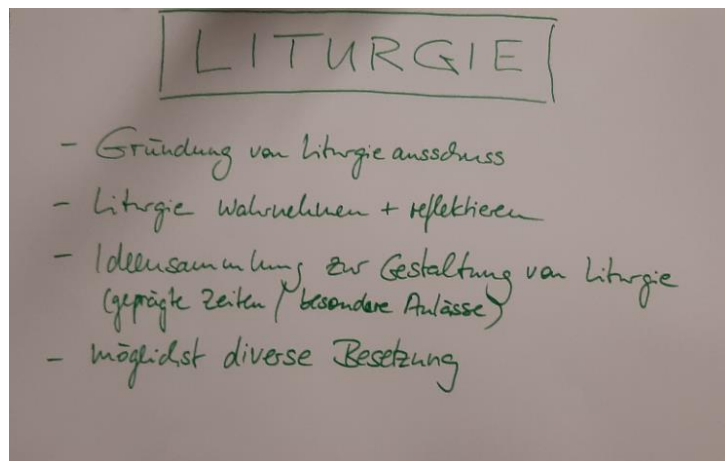 LITURGIE
- Gründung von Liturgieausschuss
- Liturgie wahrnehmen + reflektieren
- Ideensammlung zur Gestaltung von Liturgie
(geprägte Zeiten / besondere Anlässe)
- möglichst diverse Besetzung